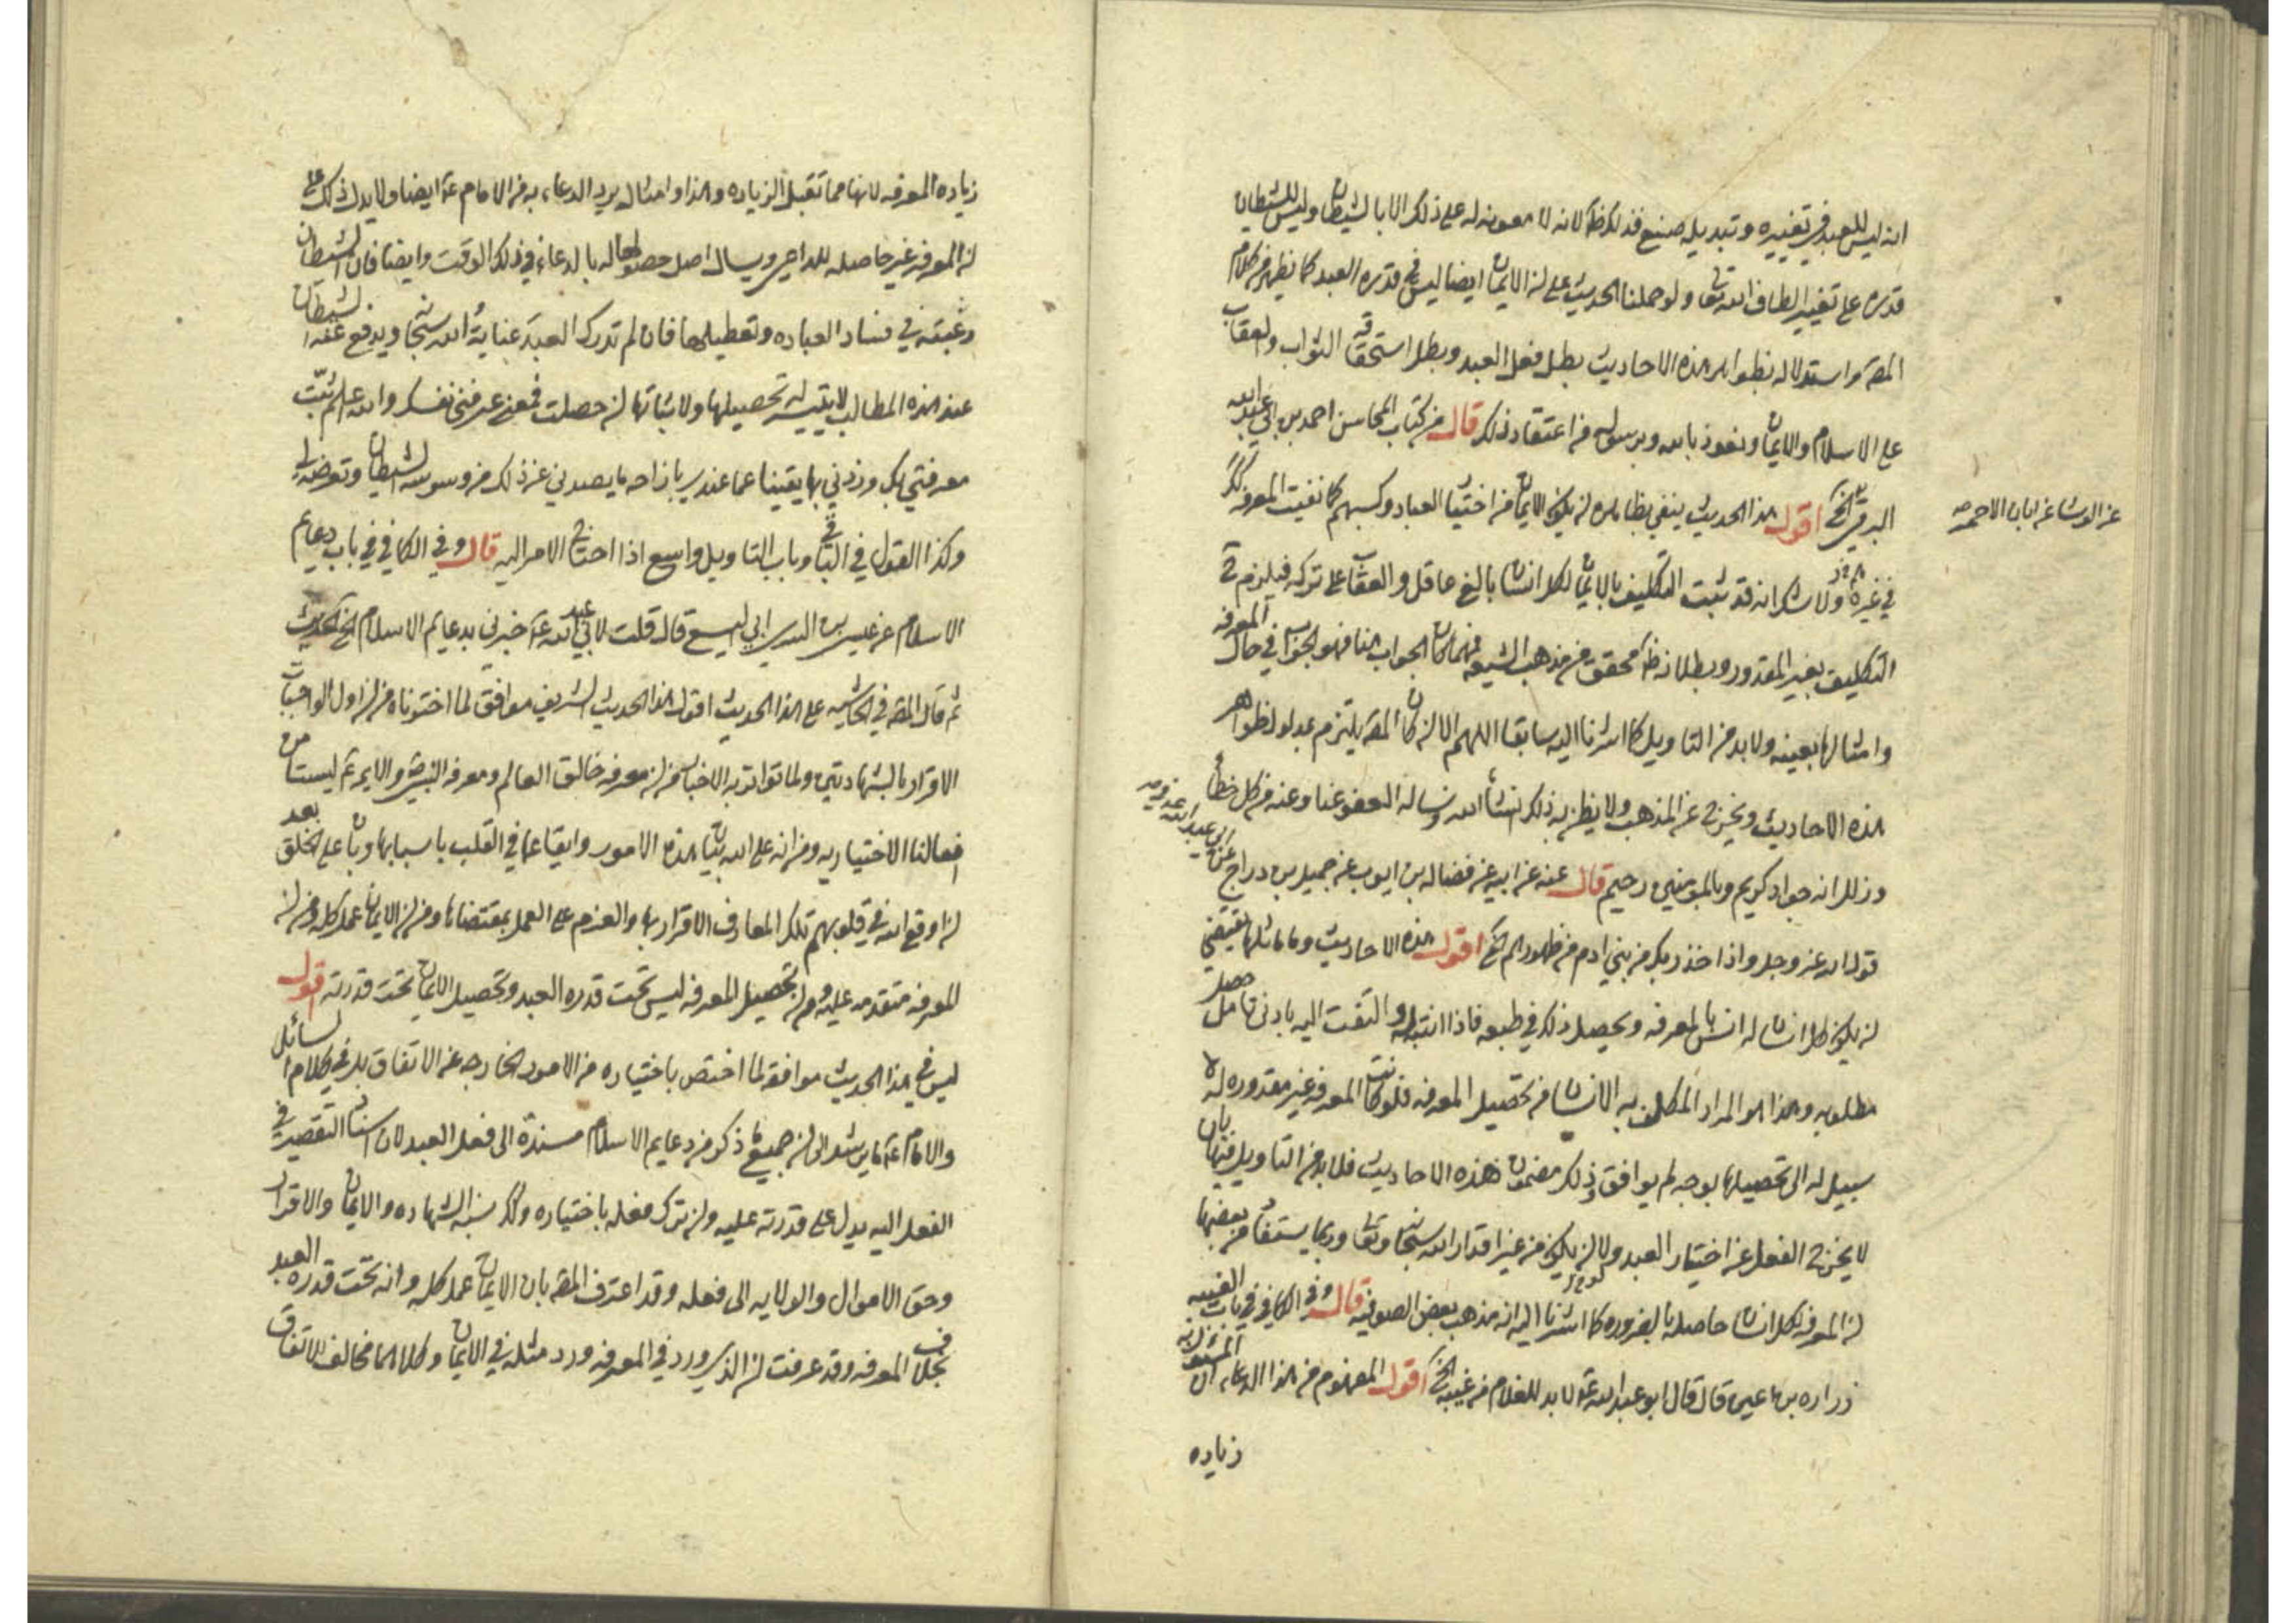 انه ليس للعبد في تغييره وتبديله صنع فذلك ظ لانه لا معونه له على ذلك الا بالشيطان وليس للشيطان
قدره على تغيير الطاف الله تعا ولو حملنا الحديث على ان الايمان ايضا ليس في قدره العبد كما يظهر من كلام
المصه واستدلاله بظواهر هذه الاحاديث بطل فعل العبد وبطل استحقاقه الثواب والعقاب
على الاسلام والايمان ونعوذ بالله وبرسوله من اعتقاد ذلك قال من كتاب المحاسن احمد بن ابي عبد الله
البرقي الخ اقول هذا الحديث ينفي بظاهره ان يكون الايمان من اختيار العباد وكسبهم كما نفيت المعرفه
عن الوشا عن ابان الاحمر صه
في غيره ولا شك انه قد ثبت التكليف بالايمان لكل انسان بالغ عاقل والعقاب على تركه فيلزم ح
التكليف بغير المقدور وبطلانه ظ محقق من مذهب الشيعه فمهما كان الجواب هنا فهو الجواب في حال المعرفه
وامثالها بعينه ولا بد من التاويل كما اشرنا اليه سابقا اللهم الا ان كان المصه يلتزم بمدلول ظواهر
هذه الاحاديث ويخرج عن المذهب ولا يظن به ذلك انشأ الله ونساله العفو عنا وعنه من كل خطأ
وزلل انه جواد كريم وبالمؤمنين رحيم قال عنه عن ابيه عن فضاله بن ايوب عن جميل بن دراج عن ابي عبد الله عه في صه
قول الله عز وجل واذ اخذ ربك من بني ادم من ظهورهم الخ اقول هذه الاحاديث وما ماثلها تقتضي
ان يكون كل انسان له انس بالمعرفه ويحصل ذلك في طبعه فاذا انتبه له والتفت اليه بادنى تامل حصل
مطلوبه وهذا هو المراد المكلف به الانسان من تحصيل المعرفه فلو كانت المعرفه غير مقدوره له لا
سبيل له الى تحصيلها بوجه لم يوافق ذلك مضمون هذه الاحاديث فلا بد من التاويل فيها بان
لا يخرج الفعل عن اختيار العبد ولا ان يكون من غير اقدار الله سبحانه وتعا وربما يستفاد من بعضها
ان المعرفه لكل انسان حاصله بالضروره كما اشرنا اليه انه مذهب بعض الصوفيه قال وفي الكافي في باب الغيبه
زراره بن اعين قال قال ابو عبد الله عه لا بد للغلام من غيبه الخ اقول المفهوم من هذا الدعاء ان المسئول به
زياده
زياده المعرفه لانها مما تقبل الزياده وهذا وامثاله يرد الدعاء به من الامام عه ايضا ولا يدل ذلك على
ان المعرفه غير حاصله للداعي ويسال اصل حصولها له بالدعاء في ذلك الوقت وايضا فان الشيطان
رغبته في فساد العباده وتعطيلها فان لم تدرك العبد عناية الله سبحانه ويدفع عنه الشيطان
عند هذه المطالب لا يتيسر له تحصيلها ولا ثباتها ان حصلت فمعنى عرفني نفسك والله اعلم ثبت
معرفتي بك وزدني بها يقينا عما عندي بازاحه ما يصدني عن ذلك من وسوسه الشيطان وتعرضه لي
وكذا القول في الباقي وباب التاويل واسع اذا احتاج الامر اليه قال وفي الكافي في باب دعايم
الاسلام عن عيسى بن السري ابي اليسع قال قلت لابي عبد الله عه اخبرني بدعايم الاسلام الخ الحديث
ثم قال المصه في الحاشيه على هذا الحديث اقول هذا الحديث الشريف موافق لما اخترناه من ان اول الواجبات
الاقرار بالشهادتين ولما تواترت به الاخبار من ان معرفه خالق العالم ومعرفه النبي ص والايمه عه ليستا من
افعالنا الاختياريه ومن انه على الله بيان هذه الامور وايقاعها في القلب باسبابها وبان على الخلق بعد
ان اوقع الله في قلوبهم تلك المعارف الاقرار بها والعزم على العمل بمقتضاها ومن ان الايمان عمل كله ومن ان
المعرفه متقدمه عليه ومن ان تحصيل المعرفه ليس تحت قدره العبد وتحصيل الايمان تحت قدرته اقول
ليس في هذا الحديث موافقه لما اختص باختياره من الامور الخارجه عن الاتفاق بل في كلام السائل
والامام عه ما يرشد الى ان جميع ما ذكر من دعايم الاسلام مسندة الى فعل العبد لان اسناد التقصير في
الفعل اليه يدل على قدرته عليه وان ترك فعله باختياره وكذا نسبه الشهاده والايمان والاقرار
وحق الاموال والولايه الى فعله وقد اعترف المصه بان الايمان عمل كله وانه تحت قدره العبد
بخلاف المعرفه وقد عرفت ان الذي ورد في المعرفه ورد مثله في الايمان وكلاهما مخالف للاتفاق